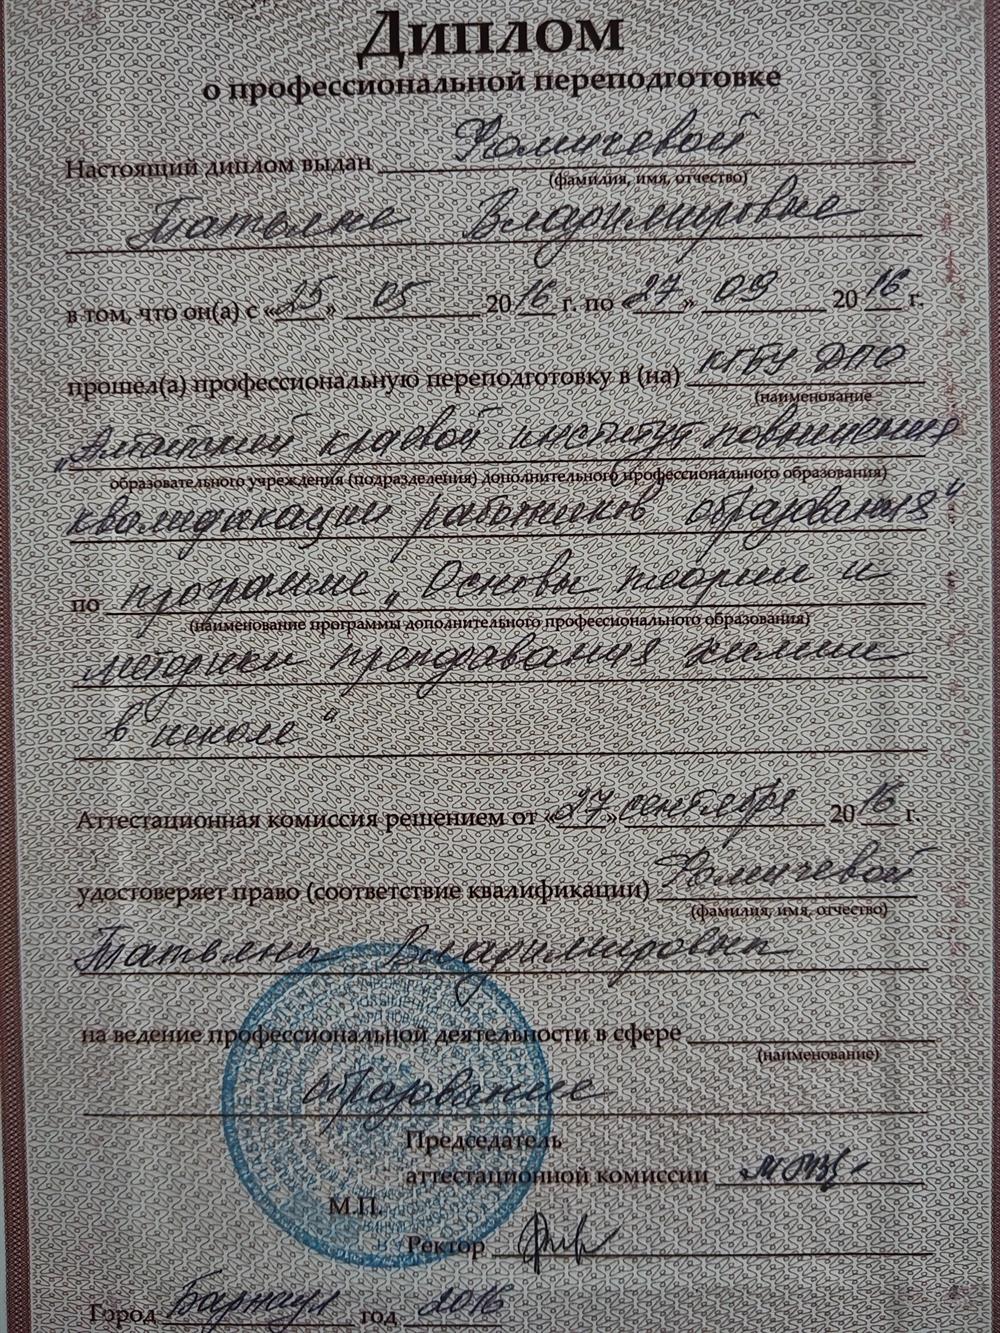 Диплом
о профессиональной переподготовке
Настоящий диплом выдан Фомичевой
(фамилия, имя, отчество)
Татьяне Владимировне
в том, что он(а) с «25» 05 2016 г. по «27» 09 2016 г.
прошел(а) профессиональную переподготовку в (на) КГБУ ДПО
(наименование
„Алтайский краевой институт повышения
образовательного учреждения (подразделения) дополнительного профессионального образования)
квалификации работников образования“
по программе „Основы теории и
(наименование программы дополнительного профессионального образования)
методики преподавания химии
в школе“
Аттестационная комиссия решением от «27» сентября 2016 г.
удостоверяет право (соответствие квалификации) Фомичевой
(фамилия, имя, отчество)
Татьяны Владимировны
на ведение профессиональной деятельности в сфере
(наименование)
образование
Председатель
аттестационной комиссии
М.П.
Ректор
Город Барнаул год 2016